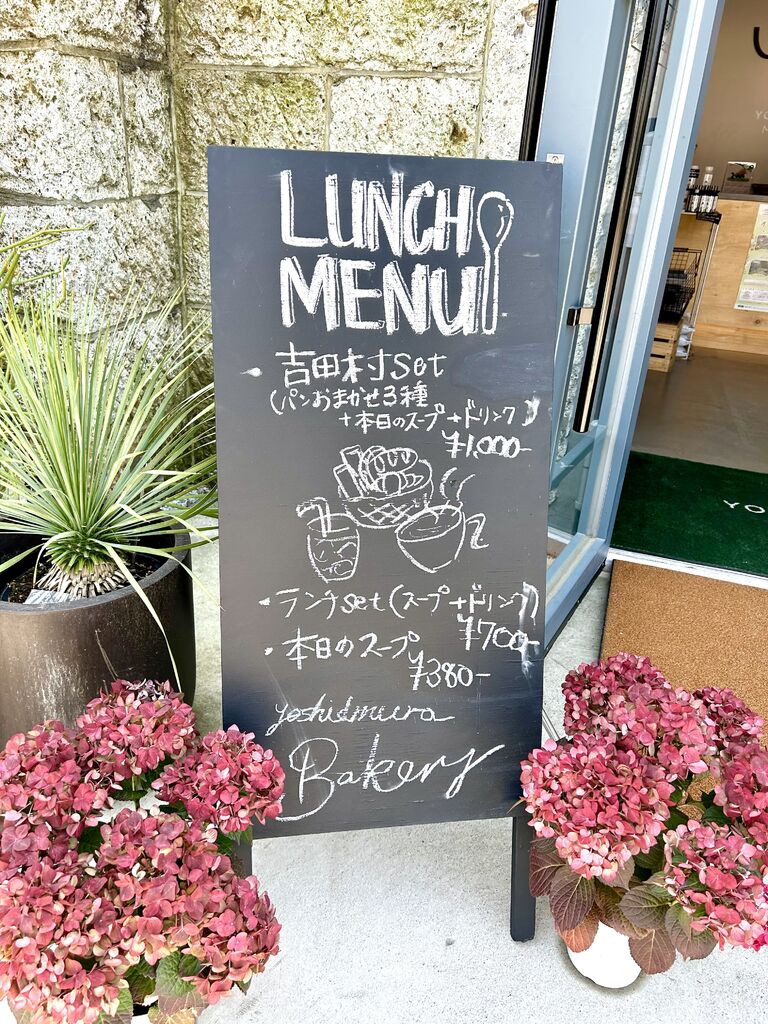 LUNCH
MENU
・吉田村set
(パンおまかせ3種
+本日のスープ+ドリンク)
¥1,000-
・ランチset(スープ+ドリンク)
¥700-
・本日のスープ
¥380-
yoshidamura
Bakery
YO